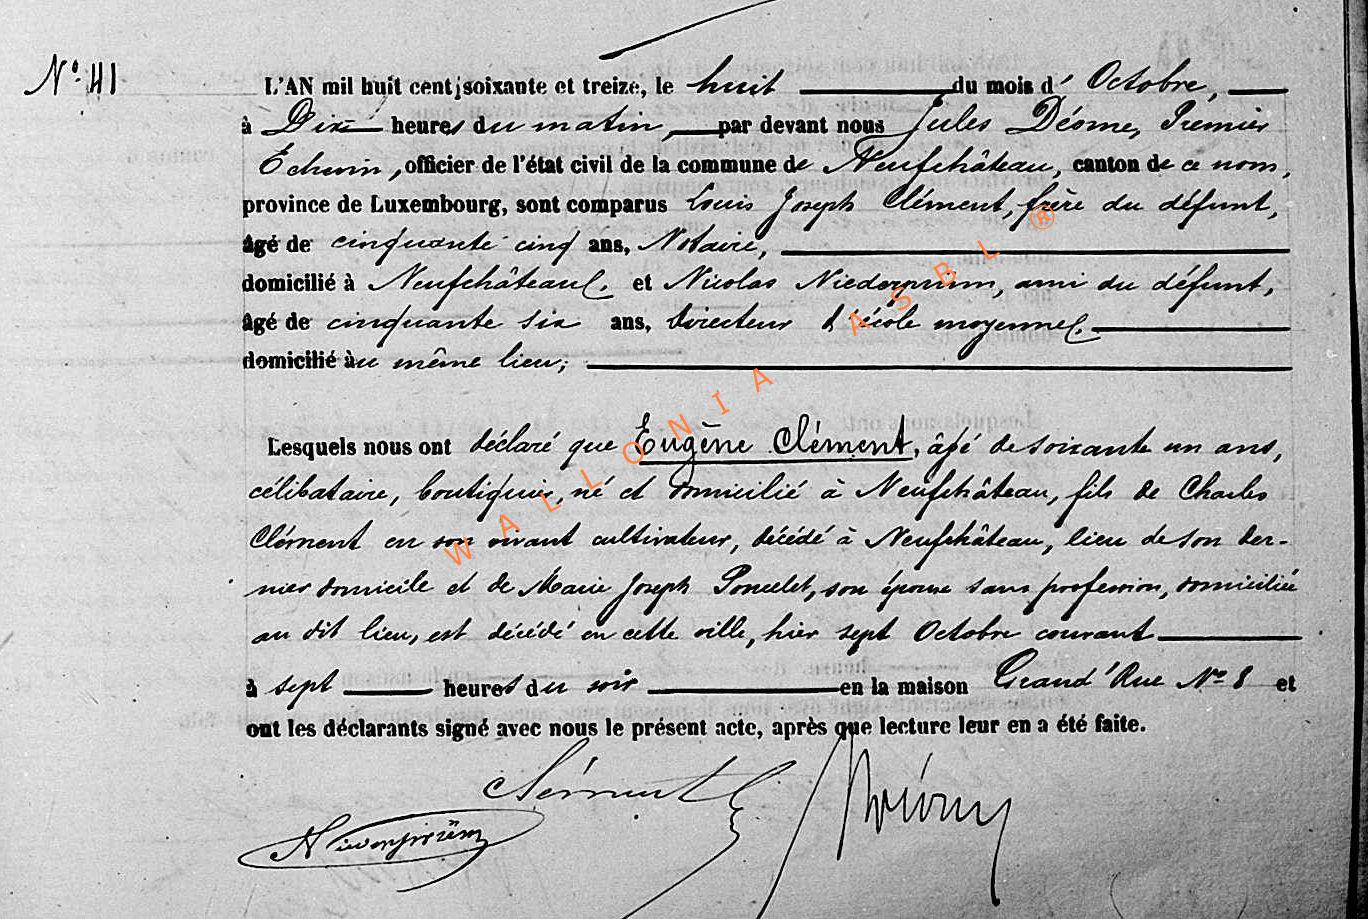 N° 41
L'AN mil huit cent soixante et treize, le huit du mois d' Octobre,
à Dix heures du matin, par devant nous Jules Déome, Premier
Echevin, officier de l'état civil de la commune de Neufchâteau, canton de ce nom,
province de Luxembourg, sont comparus Louis Joseph Clément, frère du défunt,
âgé de cinquante cinq ans, Notaire,
domicilié à Neufchâteau, et Nicolas ami du défunt,
âgé de cinquante six ans, Directeur d'école moyenne,
domicilié au même lieu;
Lesquels nous ont déclaré que Eugène Clément, âgé de soixante un ans,
célibataire, boutiquier, né et domicilié à Neufchâteau, fils de Charles
Clément en son vivant cultivateur, décédé à Neufchâteau, lieu de son der-
nier domicile et de Marie Joseph Poncelet, son épouse sans profession, domiciliée
au dit lieu, est décédé en cette ville, hier sept Octobre courant
à sept heures du soir en la maison Grand'Rue N° 8 et
ont les déclarants signé avec nous le présent acte, après que lecture leur en a été faite.
Clément
WALLONIA ASBL ®